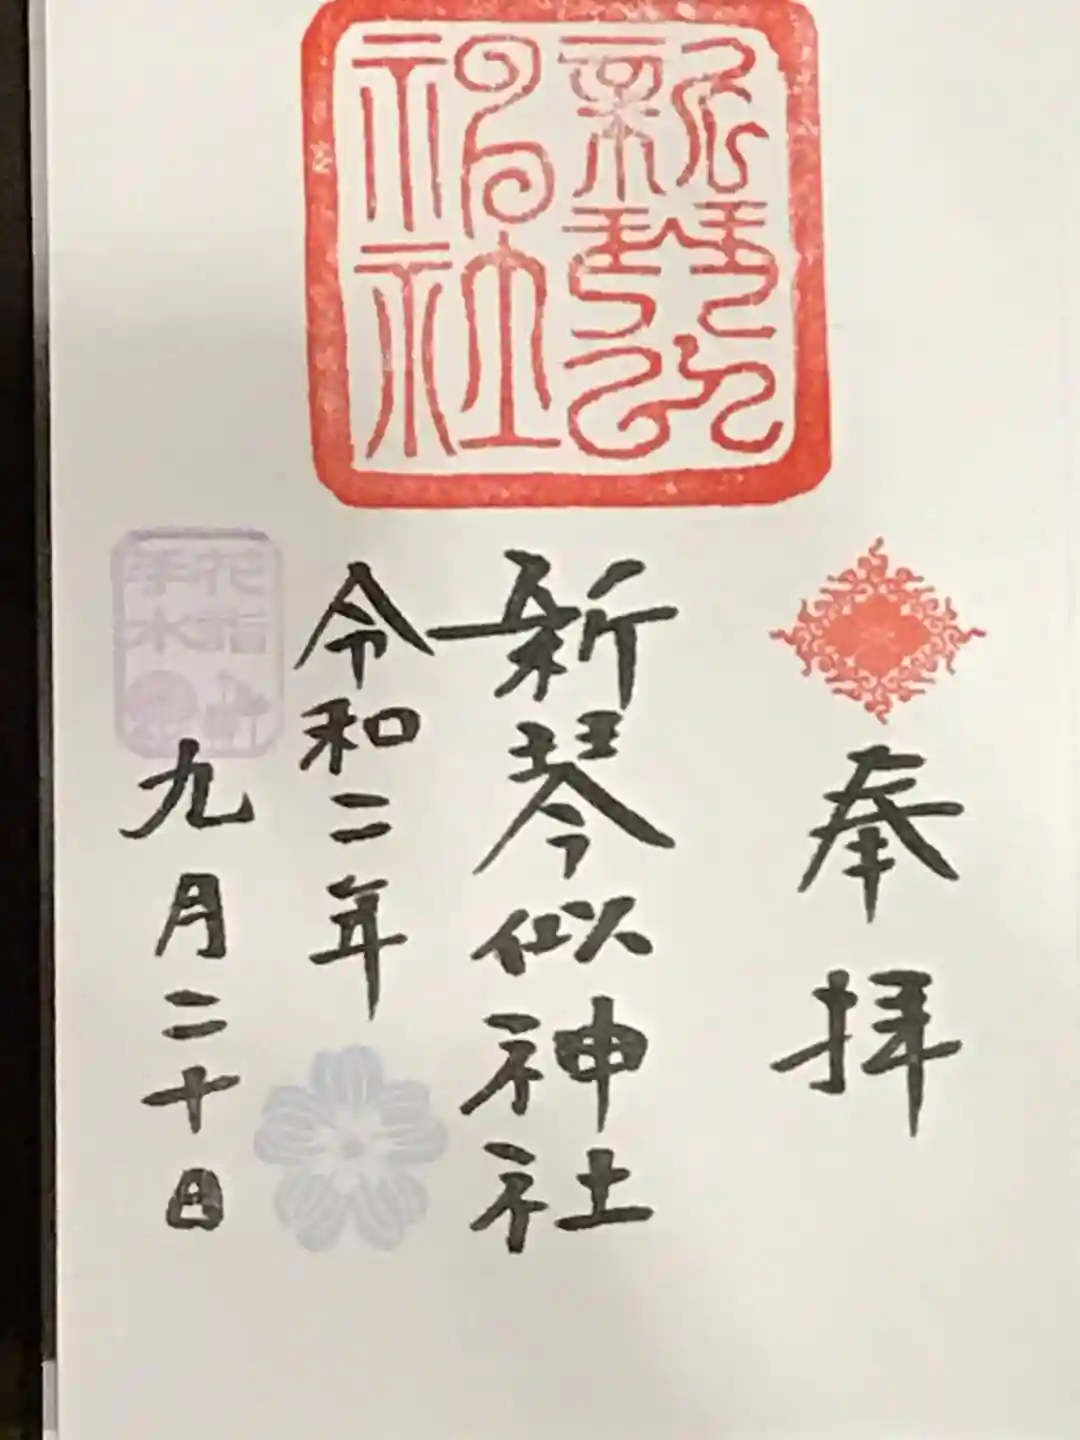 奉拝
新琴似神社
令和二年
九月二十日
新琴似
神社
花詣
手水